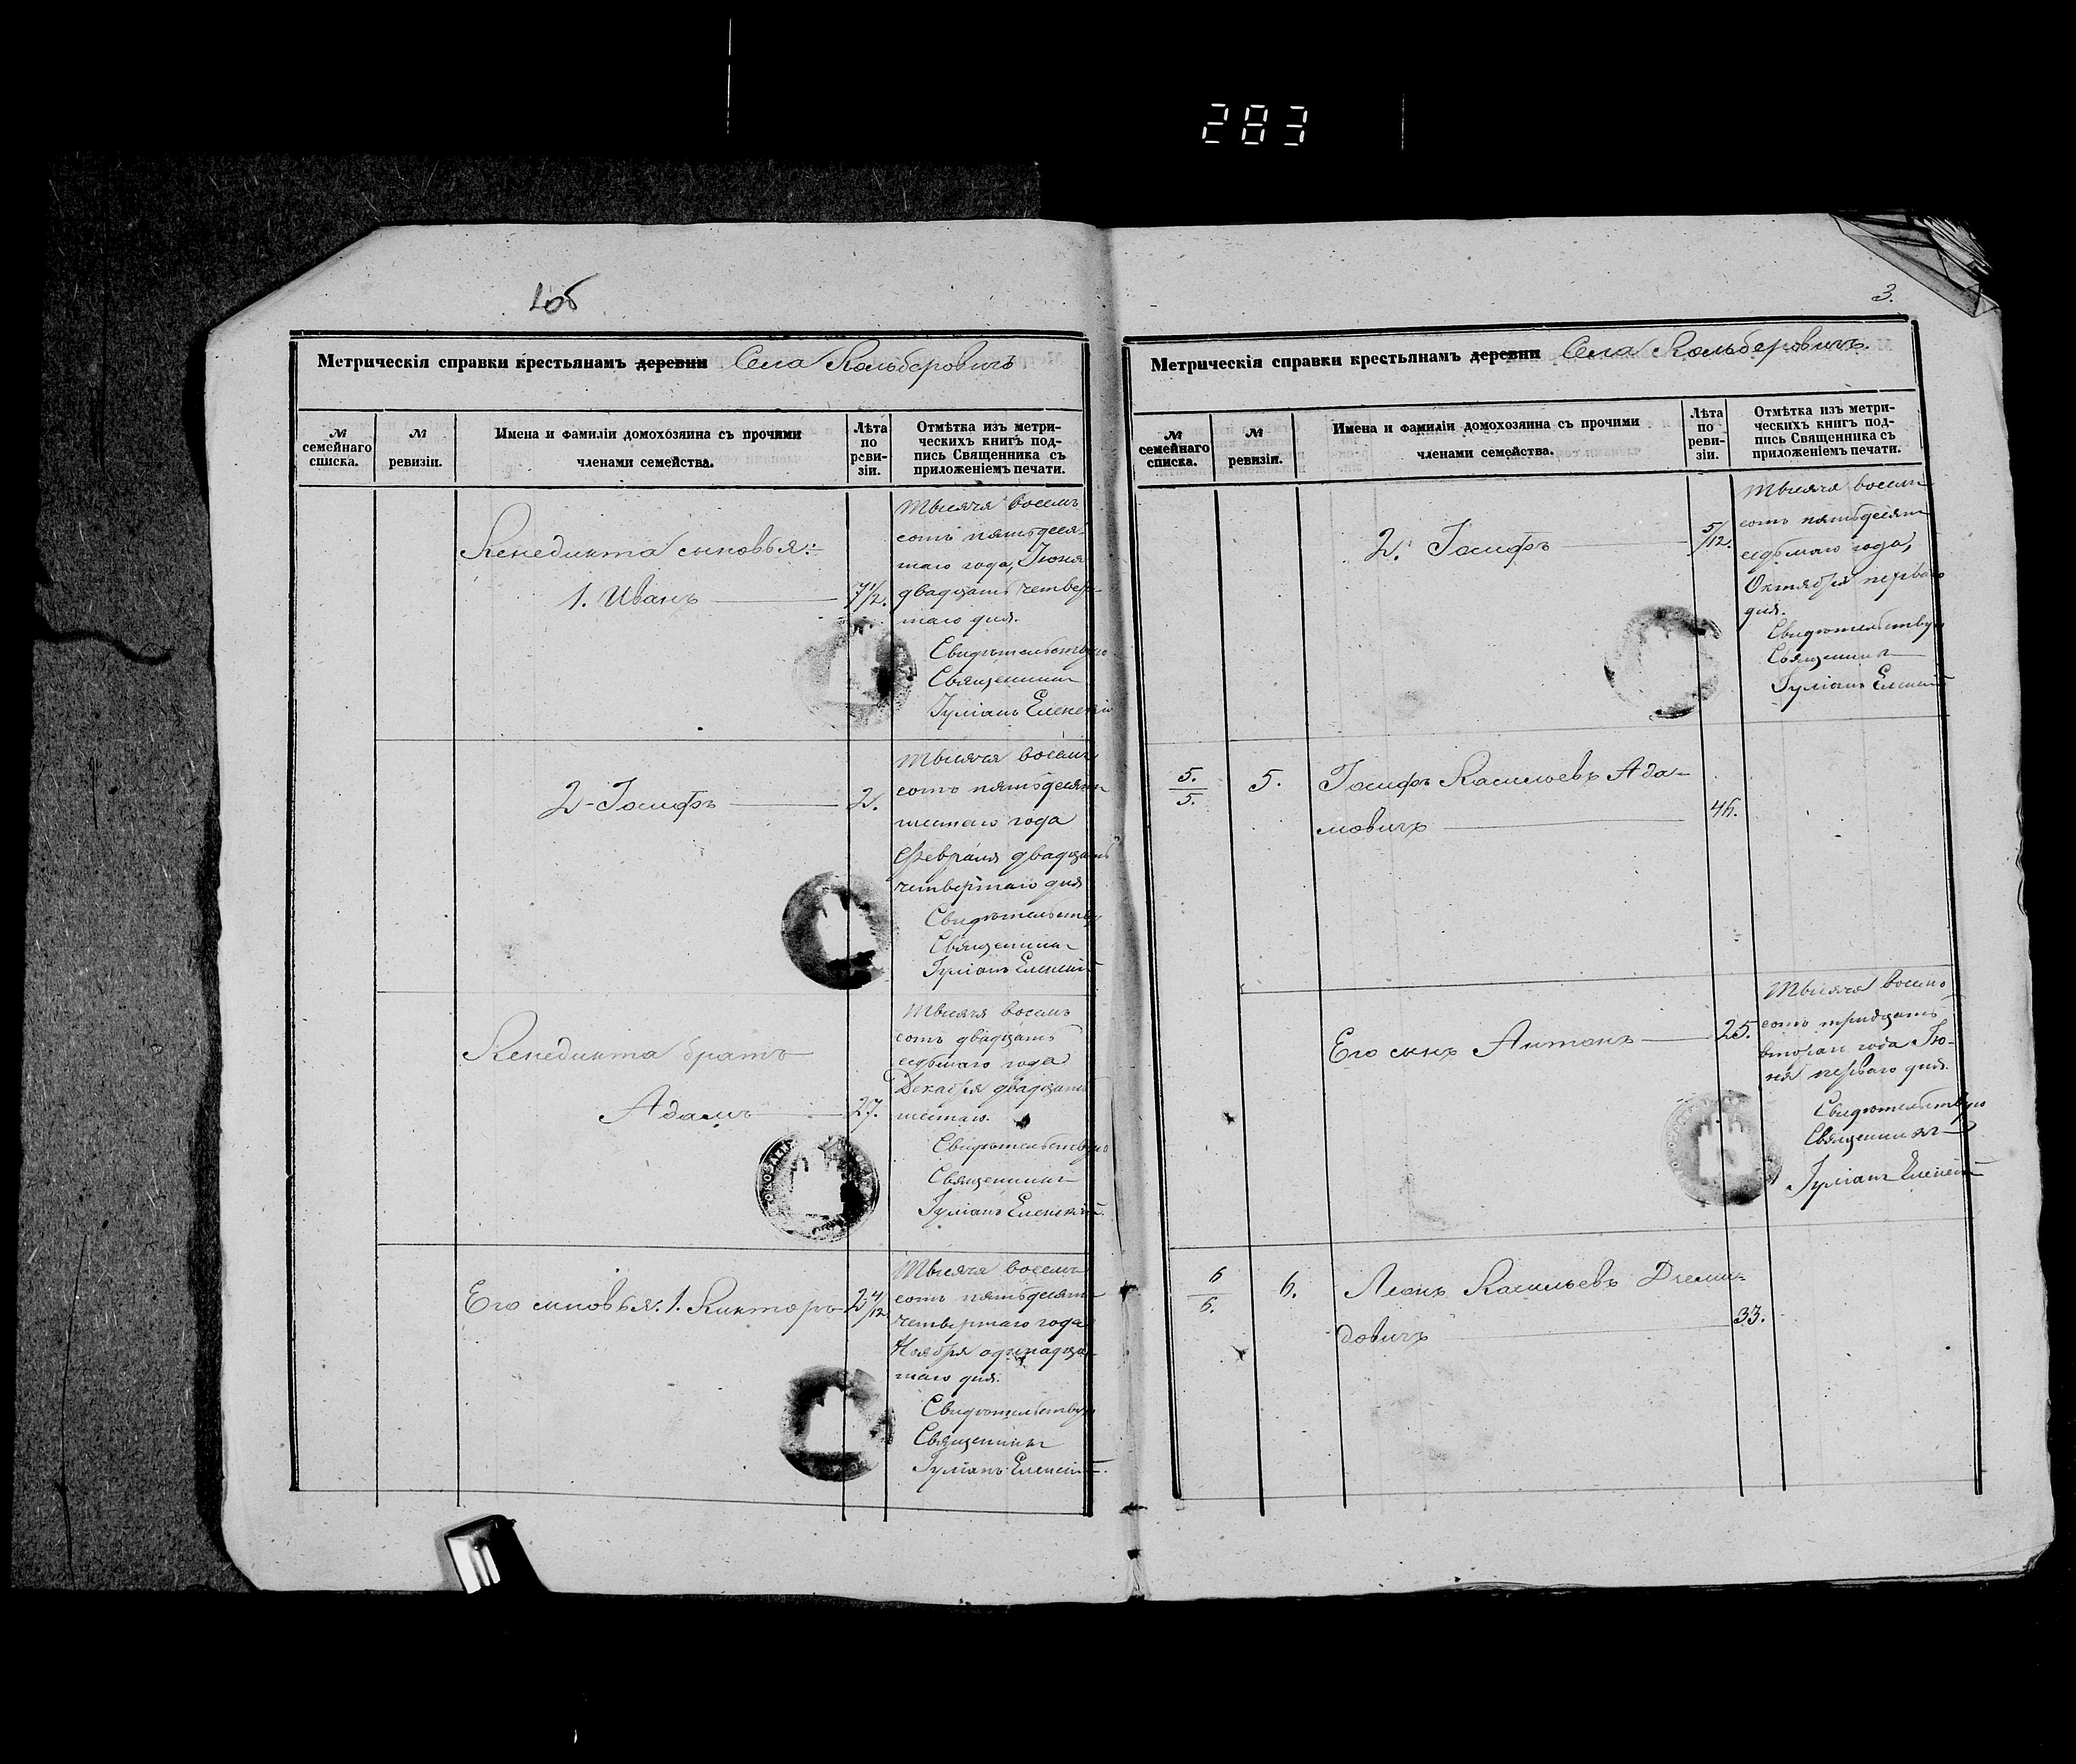 283
2об
Метрическія справки крестьянамъ деревни Села Кольберовичъ
№ семейнаго списка.
№ ревизіи.
Имена и фамиліи домохозяина съ прочими
членами семейства.
Лѣта по реви-зіи.
Отмѣтка изъ метри-
ческихъ книгъ под-
пись Священника съ
приложеніемъ печати.
Венедикта сыновья:
1. Иванъ
7 1/2.
Тысяча восемь
сотъ пятьдеся-
таго года, Іюня
двадцать четвер-
таго дня.
Свидѣтельствую
Священникъ
Іуліанъ Еленскій
2 - Іосифъ
2.
Тысяча восемь
сотъ пятьдесятъ
шестаго года
Февраля двадцать
четвертаго дня
Свидѣтельствую
Священникъ
Іуліанъ Еленскій
Венедикта братъ
Адамъ
27.
Тысяча восемь
сотъ двадцать
седьмаго года
Декабря двадцать
шестаго.
Свидѣтельствую
Священникъ
Іуліанъ Еленскій.
Его сыновья: 1. Викторъ
2 4/12
Тысяча восемь
сотъ пятьдесятъ
четвертаго года
Ноября одинадца-
таго дня.
Свидѣтельствую
Священникъ
Іуліанъ Еленскій.
3.
Метрическія справки крестьянамъ деревни Села Кольберовичъ.
№ семейнаго списка.
№ ревизіи.
Имена и фамиліи домохозяина съ прочими
членами семейства.
Лѣта по реви-зіи.
Отмѣтка изъ метри-
ческихъ книгъ под-
пись Священника съ
приложеніемъ печати.
2. Іосифъ
5/12.
Тысяча восемь
сотъ пятьдесятъ
седьмаго года,
Октября перваго
дня.
Свидѣтельствую
Священникъ
Іуліанъ Еленскій
5.
5.
5.
Іосифъ Васильевъ Ада-
мовичъ
46.
Его сынъ Антонъ
25.
Тысяча восемь
сотъ тридцать
втораго года Ію-
ня перваго дня.
Свидѣтельствую
Священникъ
Іуліанъ Еленскій
6
6.
6.
Леонъ Васильевъ Деми-
довичъ
33.